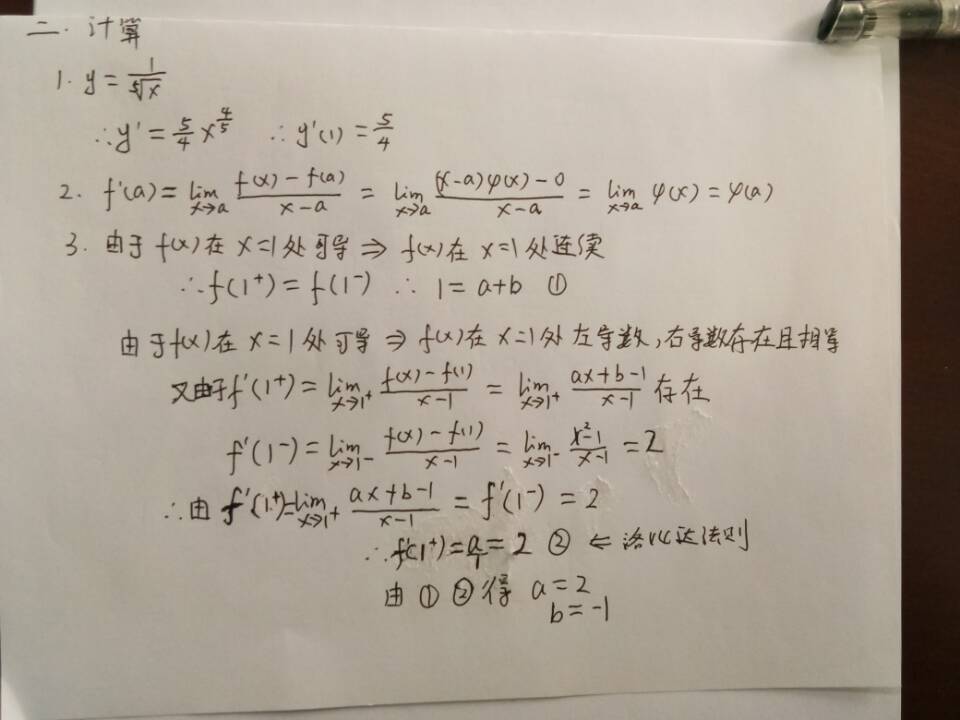 二. 计算
1. y = 1/⁵√x
∴y' = 5/4 x^(4/5) ∴ y'(1) = 5/4
2. f'(a) = lim x→a (f(x) - f(a))/(x-a) = lim x→a ((x-a)φ(x) - 0)/(x-a) = lim x→a φ(x) = φ(a)
3. 由于f(x)在x=1处可导 ⇒ f(x)在x=1处连续
∴f(1⁺) = f(1⁻) ∴ 1 = a+b ①
由于f(x)在x=1处可导 ⇒ f(x)在x=1处左导数,右导数存在且相等
又由于f'(1⁺) = lim x→1⁺ (f(x) - f(1))/(x-1) = lim x→1⁺ (ax+b-1)/(x-1) 存在
f'(1⁻) = lim x→1⁻ (f(x) - f(1))/(x-1) = lim x→1⁻ (x²-1)/(x-1) = 2
∴由f'(1⁺)=lim x→1⁺ (ax+b-1)/(x-1) = f'(1⁻) = 2
∴f'(1⁺) = a/1 = 2 ② ⇐ 洛必达法则
由①②得 a=2
b=-1